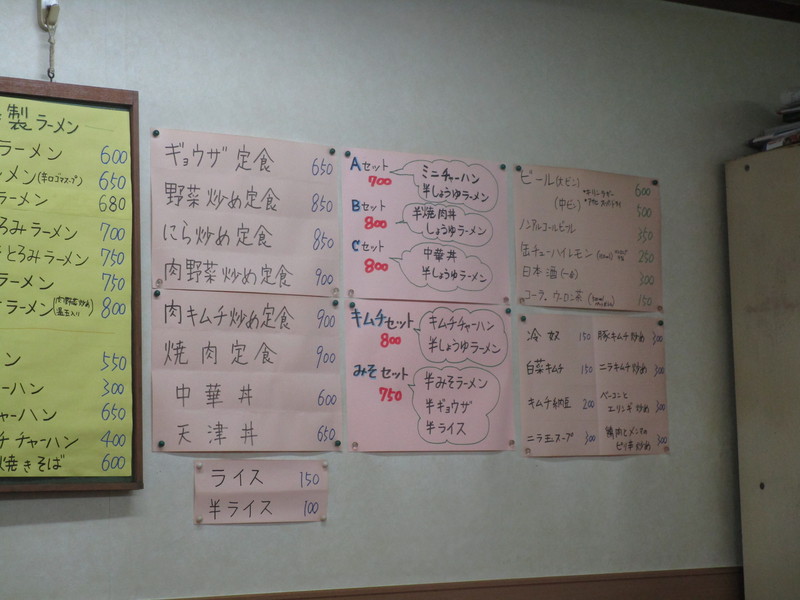 製ラーメン
ラーメン 600
メン(辛口スープ) 650
ラーメン 680
ろみラーメン 700
とろみラーメン 750
ラーメン 750
ラーメン 800
ン 550
ーハン 300
チャーハン 650
チチャーハン 400
焼きそば 600
ギョウザ定食 650
野菜炒め定食 850
にら炒め定食 850
肉野菜炒め定食 900
肉キムチ炒め定食 900
焼肉定食 900
中華丼 600
天津丼 650
ライス 150
半ライス 100
Aセット 700
ミニチャーハン
半しょうゆラーメン
Bセット 800
半焼肉丼
しょうゆラーメン
Cセット 800
中華丼
半しょうゆラーメン
キムチセット 800
キムチチャーハン
半しょうゆラーメン
みそセット 750
半みそラーメン
半ギョウザ
半ライス
ビール(大ビン) 600
(中ビン) 500
ノンアルコールビール 350
缶チューハイレモン 250
日本酒(一合) 300
コーラ、ウーロン茶 150
冷奴 150
白菜キムチ 150
キムチ納豆 200
ニラ玉スープ 300
豚キムチ炒め 300
ニラキムチ炒め 300
ベーコンと
エリンギ炒め 300
鶏肉とメンマの
ピリ辛炒め 300